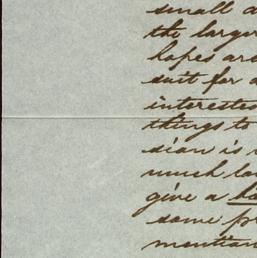 small a
the larger
hopes are
suit for a
interested
things to
sian is
much la
give a
some pr
mention